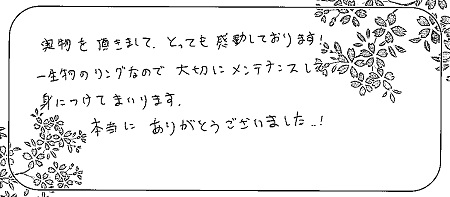 実物を頂きまして、とっても感動しております!
一生物のリングなので 大切に メンテナンスして
身につけてまいります。
本当に ありがとうございました..!